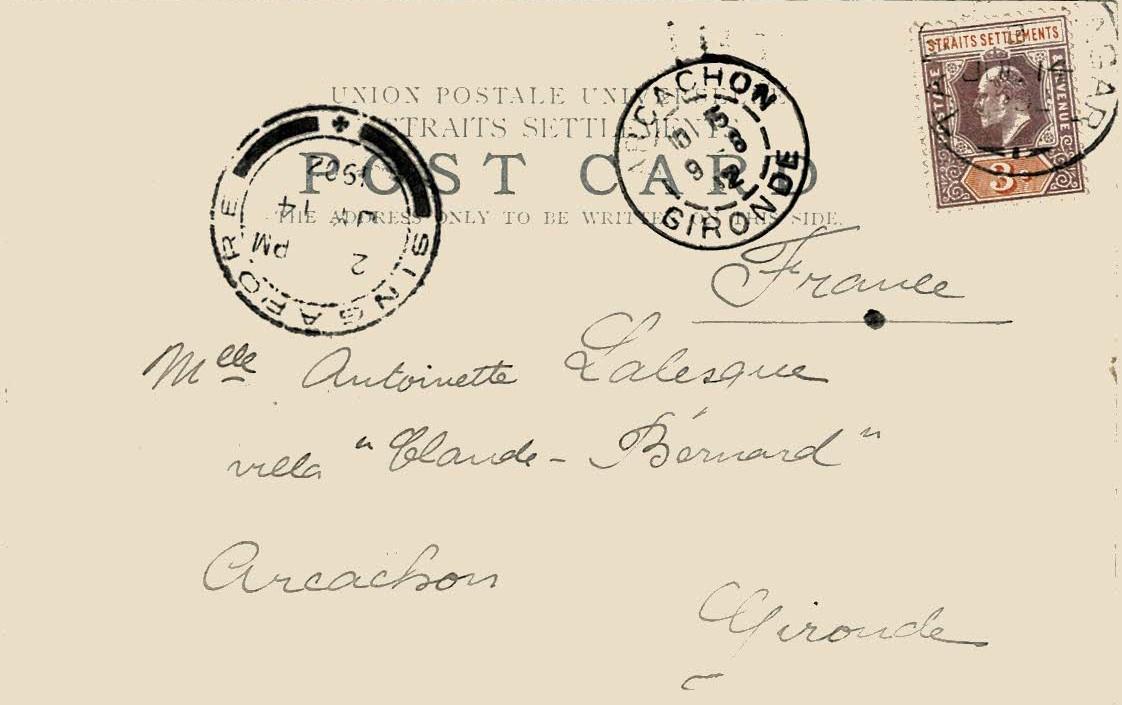 UNION POSTALE UNIVERSELLE
STRAITS SETTLEMENTS
POST CARD
THE ADDRESS ONLY TO BE WRITTEN ON THIS SIDE.
STRAITS SETTLEMENTS
POSTAGE & REVENUE
3
SINGAPORE
2 PM
JY 14
1902
ARCACHON
GIRONDE
France
Mlle Antoinette Lalesque
villa "Claude-Bernard"
Arcachon
Gironde